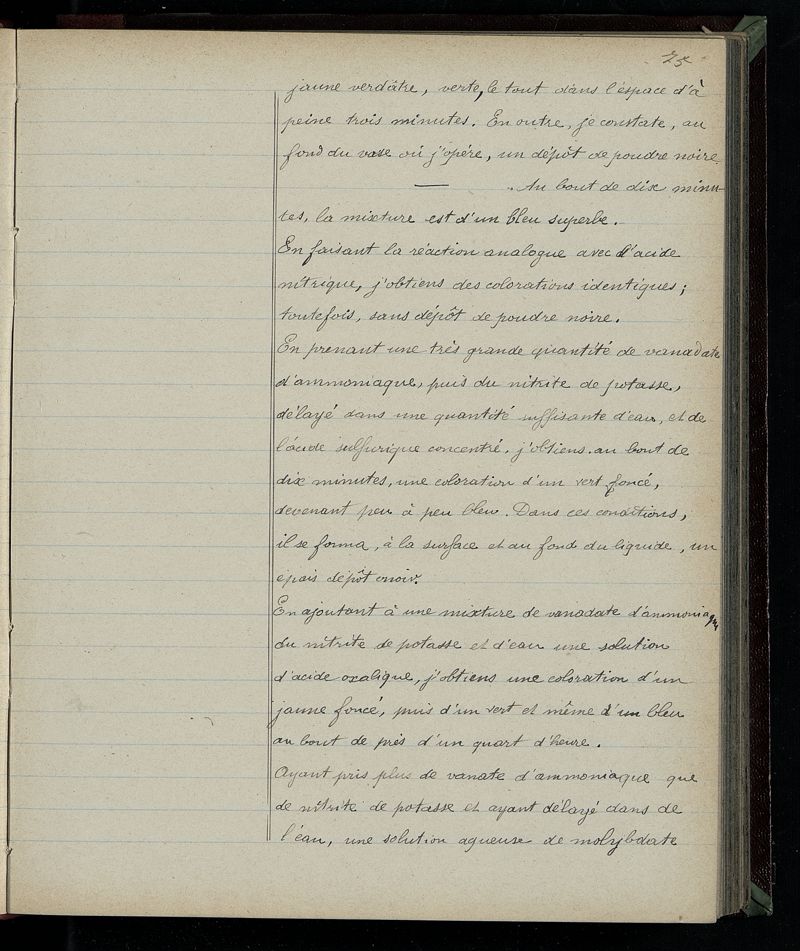 75
jaune verdâtre, verte, le tout dans l'espace d'à
peine trois minutes. En outre, je constate, au
fond du vase où j'opère, un dépôt de poudre noire.
— . Au bout de dix minu-
tes, la mixture est d'un bleu superbe.
En faisant la réaction analogue avec d'acide
nitrique, j'obtiens des colorations identiques ;
toutefois, sans dépôt de poudre noire.
En prenant une très grande quantité de vanadate
d'ammoniaque, puis du nitrite de potasse,
délayé dans une quantité suffisante d'eau, et de
l'acide sulfurique concentré, j'obtiens, au bout de
dix minutes, une coloration d'un vert foncé,
devenant peu à peu bleu. Dans ces conditions,
il se forma, à la surface et au fond du liquide, un
épais dépôt noir.
En ajoutant à une mixture de vanadate d'ammoniaque
du nitrite de potasse et d'eau une solution
d'acide oxalique, j'obtiens une coloration d'un
jaune foncé, puis d'un vert et même d'un bleu
au bout de près d'un quart d'heure.
Ayant pris plus de vanate d'ammoniaque que
de nitrite de potasse et ayant délayé dans de
l'éau, une solution aqueuse de molybdate